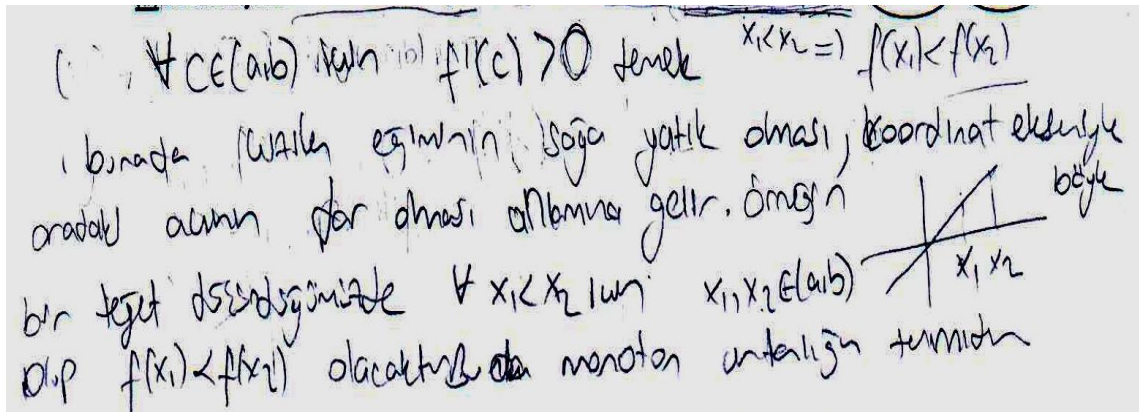 ∀ c∈(a,b) için f'(c) > 0 demek x₁<x₂ ⇒ f(x₁)<f(x₂)
burada eğiminin sağa yatık olması, koordinat ekseniyle
aradaki açının dar olması anlamına gelir. Örneğin böyle
bir teğet düşündüğümüzde ∀ x₁<x₂ için x₁,x₂∈(a,b) x₁ x₂
olup f(x₁)<f(x₂) olacaktır. Bu da monoton artanlığın